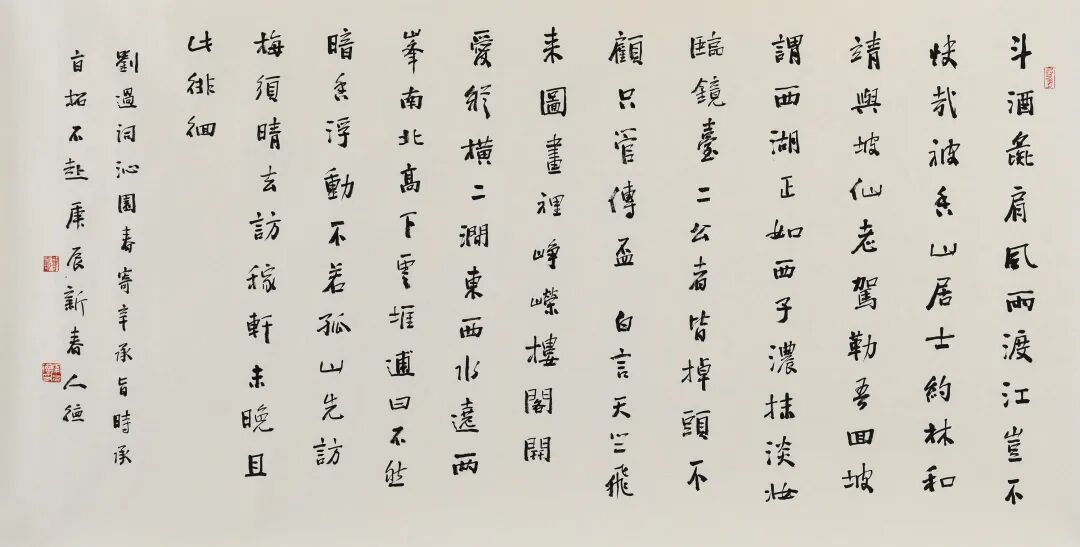 斗酒彘肩風雨渡江豈不
快哉被香山居士約林和
靖與坡仙老駕勒吾回坡
謂西湖正如西子濃抹淡妝
臨鏡臺二公者皆掉頭不
顧只管傳盃 白言天竺飛
来圖畫裡崢嶸樓閣開
愛縱橫二澗東西水遶兩
峯南北高下雲堆逋曰不然
暗香浮動不若孤山先訪
梅須晴去訪稼軒未晚且
此徘徊
劉過詞沁園春寄辛承旨時承
旨招不赴 庚辰新春 人德